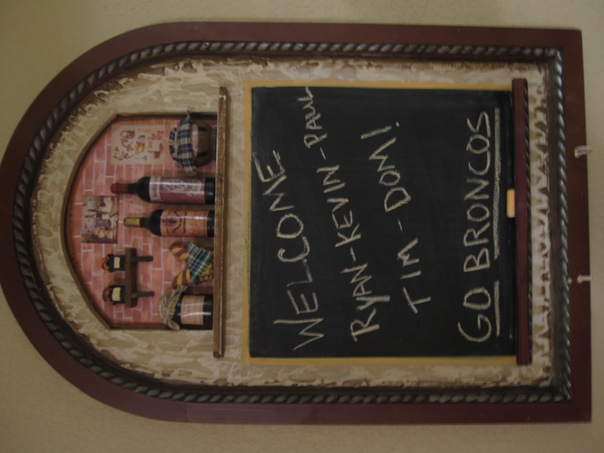 WELCOME
RYAN-KEVIN-PAUL
TIM-DOM!
GO BRONCOS